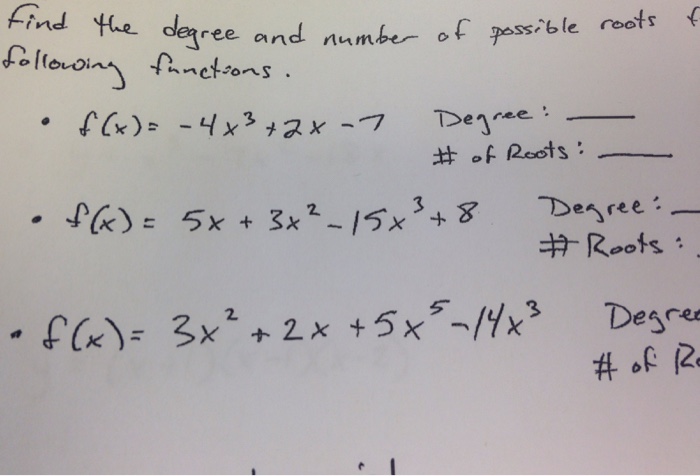 Find the degree and number of possible roots f
following functions.
• f(x) = -4x³ + 2x - 7 Degree: ___
# of Roots: ___
• f(x) = 5x + 3x² - 15x³ + 8 Degree: __
# Roots:
• f(x) = 3x² + 2x + 5x⁵ - 14x³ Degree
# of Ro